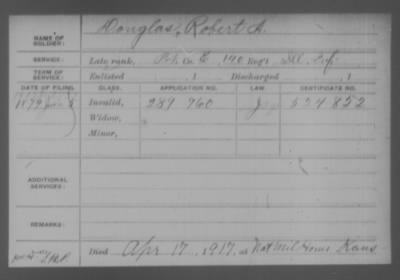 NAME OF SOLDIER: Douglas, Robert A.
SERVICE: Late rank, Pvt. Co. E, 140 Reg't Ill. Inf.
TERM OF SERVICE: Enlisted , 1 Discharged , 1
DATE OF FILING. CLASS. APPLICATION NO. LAW. CERTIFICATE NO.
1879 Invalid, 289 760 524 852
Widow,
Minor,
ADDITIONAL SERVICES:
REMARKS:
Died Apr 17, 1917, at Nat Mil Home Kans